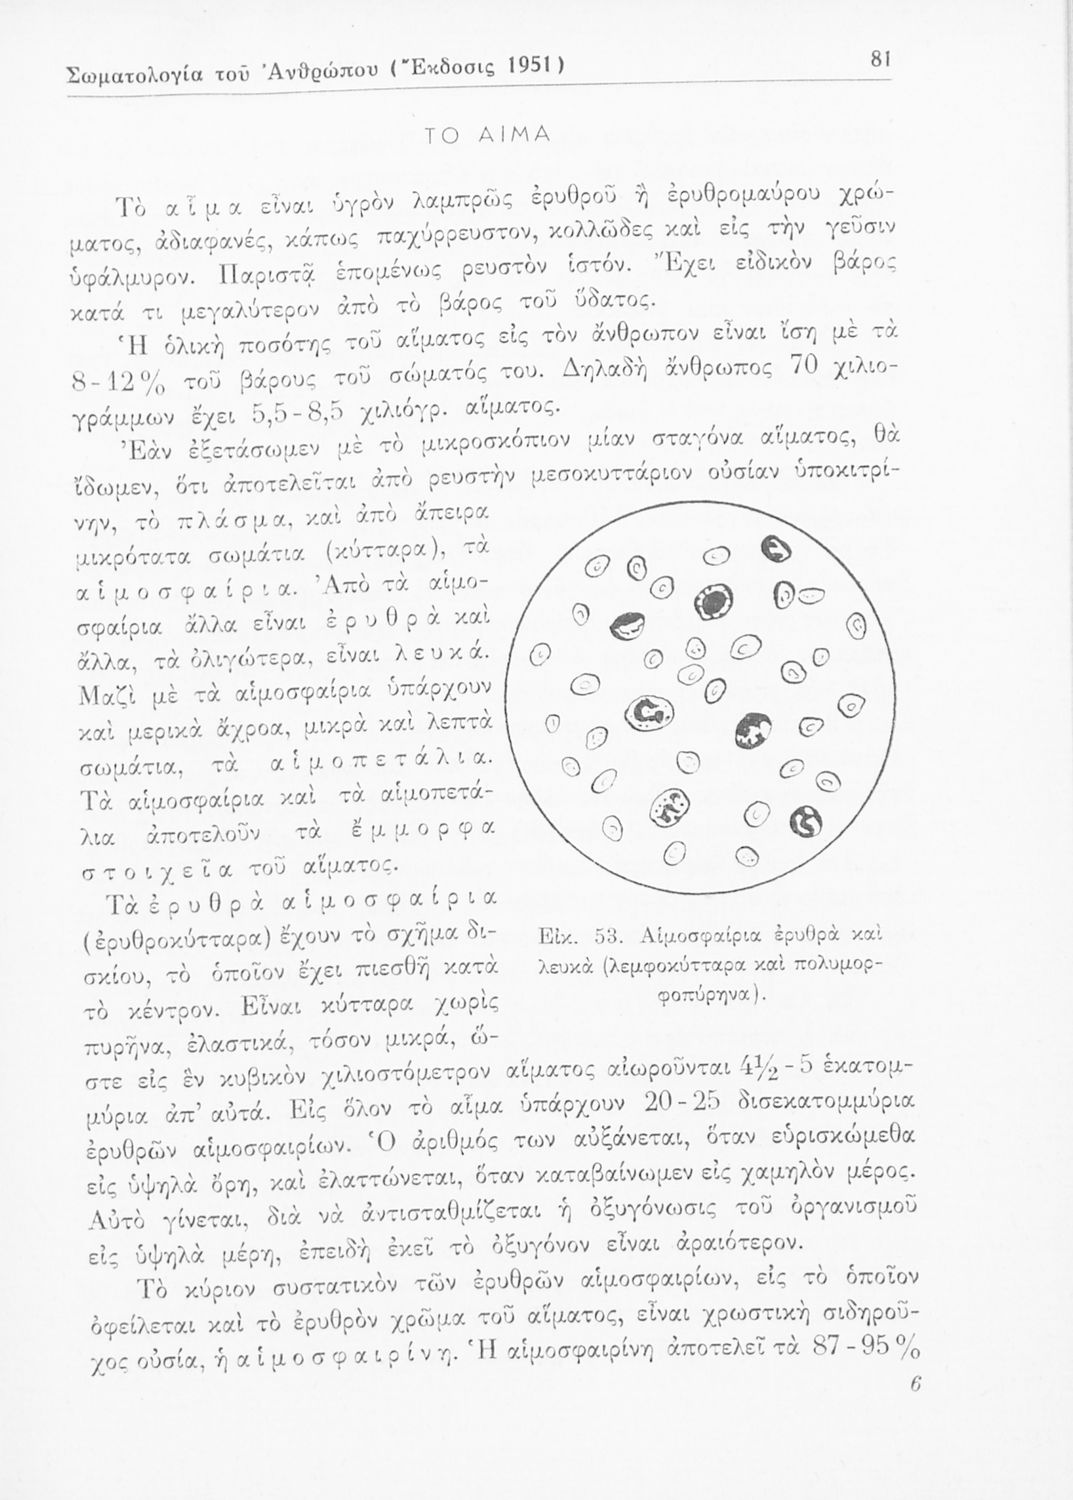 Σωματολογία τοῦ Ἀνθρώπου (Ἔκδοσις 1951) 81
ΤΟ ΑΙΜΑ
Τὸ αἷμα εἶναι ὑγρὸν λαμπρῶς ἐρυθροῦ ἢ ἐρυθρομαύρου χρώ-
ματος, ἀδιαφανές, κάπως παχύρρευστον, κολλῶδες καὶ εἰς τὴν γεῦσιν
ὑφάλμυρον. Παριστᾷ ἑπομένως ρευστὸν ἱστόν. Ἔχει εἰδικὸν βάρος
κατά τι μεγαλύτερον ἀπὸ τὸ βάρος τοῦ ὕδατος.
Ἡ ὁλικὴ ποσότης τοῦ αἵματος εἰς τὸν ἄνθρωπον εἶναι ἴση μὲ τὰ
8-12% τοῦ βάρους τοῦ σώματός του. Δηλαδὴ ἄνθρωπος 70 χιλιο-
γράμμων ἔχει 5,5-8,5 χιλιόγρ. αἵματος.
Ἐὰν ἐξετάσωμεν μὲ τὸ μικροσκόπιον μίαν σταγόνα αἵματος, θὰ
ἴδωμεν, ὅτι ἀποτελεῖται ἀπὸ ρευστὴν μεσοκυττάριον οὐσίαν ὑποκιτρί-
νην, τὸ πλάσμα, καὶ ἀπὸ ἄπειρα
μικρότατα σωμάτια (κύτταρα), τὰ
αἱμοσφαίρια. Ἀπὸ τὰ αἱμο-
σφαίρια ἄλλα εἶναι ἐρυθρὰ καὶ
ἄλλα, τὰ ὀλιγώτερα, εἶναι λευκά.
Μαζὶ μὲ τὰ αἱμοσφαίρια ὑπάρχουν
καὶ μερικὰ ἄχροα, μικρὰ καὶ λεπτὰ
σωμάτια, τὰ αἱμοπετάλια.
Τὰ αἱμοσφαίρια καὶ τὰ αἱμοπετά-
λια ἀποτελοῦν τὰ ἔμμορφα
στοιχεῖα τοῦ αἵματος.
Τὰ ἐρυθρὰ αἱμοσφαίρια
(ἐρυθροκύτταρα) ἔχουν τὸ σχῆμα δι-
σκίου, τὸ ὁποῖον ἔχει πιεσθῆ κατὰ
τὸ κέντρον. Εἶναι κύτταρα χωρὶς
πυρῆνα, ἐλαστικά, τόσον μικρά, ὥ-
στε εἰς ἓν κυβικὸν χιλιοστόμετρον αἵματος αἰωροῦνται 4½-5 ἑκατομ-
μύρια ἀπ' αὐτά. Εἰς ὅλον τὸ αἷμα ὑπάρχουν 20-25 δισεκατομμύρια
ἐρυθρῶν αἱμοσφαιρίων. Ὁ ἀριθμός των αὐξάνεται, ὅταν εὑρισκώμεθα
εἰς ὑψηλὰ ὄρη, καὶ ἐλαττώνεται, ὅταν καταβαίνωμεν εἰς χαμηλὸν μέρος.
Αὐτὸ γίνεται, διὰ νὰ ἀντισταθμίζεται ἡ ὀξυγόνωσις τοῦ ὀργανισμοῦ
εἰς ὑψηλὰ μέρη, ἐπειδὴ ἐκεῖ τὸ ὀξυγόνον εἶναι ἀραιότερον.
Τὸ κύριον συστατικὸν τῶν ἐρυθρῶν αἱμοσφαιρίων, εἰς τὸ ὁποῖον
ὀφείλεται καὶ τὸ ἐρυθρὸν χρῶμα τοῦ αἵματος, εἶναι χρωστικὴ σιδηροῦ-
χος οὐσία, ἡ αἱμοσφαιρίνη. Ἡ αἱμοσφαιρίνη ἀποτελεῖ τὰ 87-95%
6
Εἰκ. 53. Αἱμοσφαίρια ἐρυθρὰ καὶ
λευκὰ (λεμφοκύτταρα καὶ πολυμορ-
φοπύρηνα).